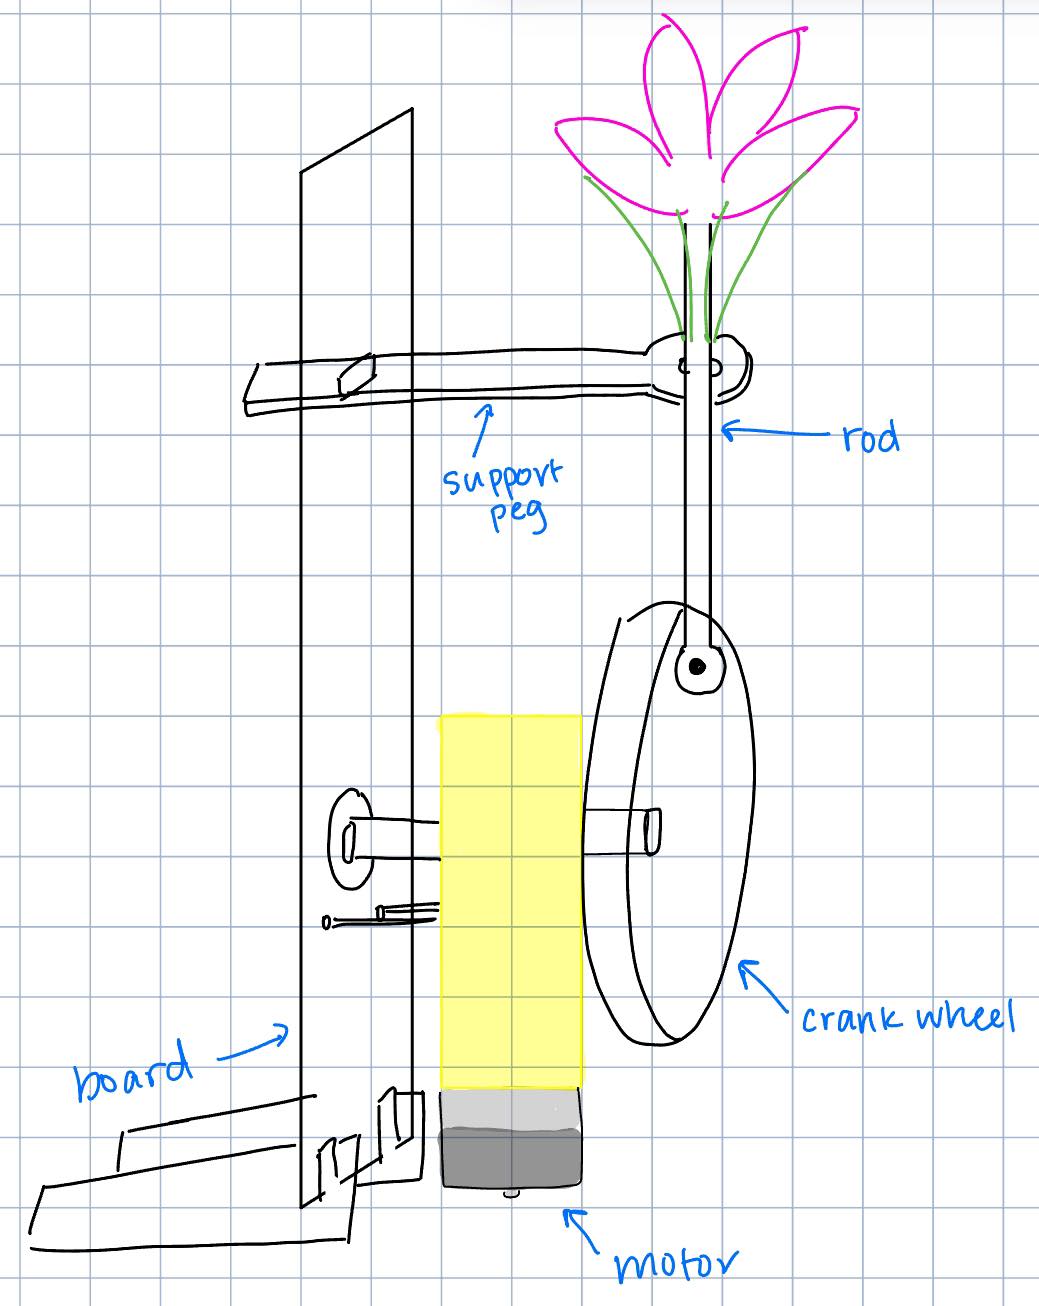 rod
support
peg
crank wheel
board
motor